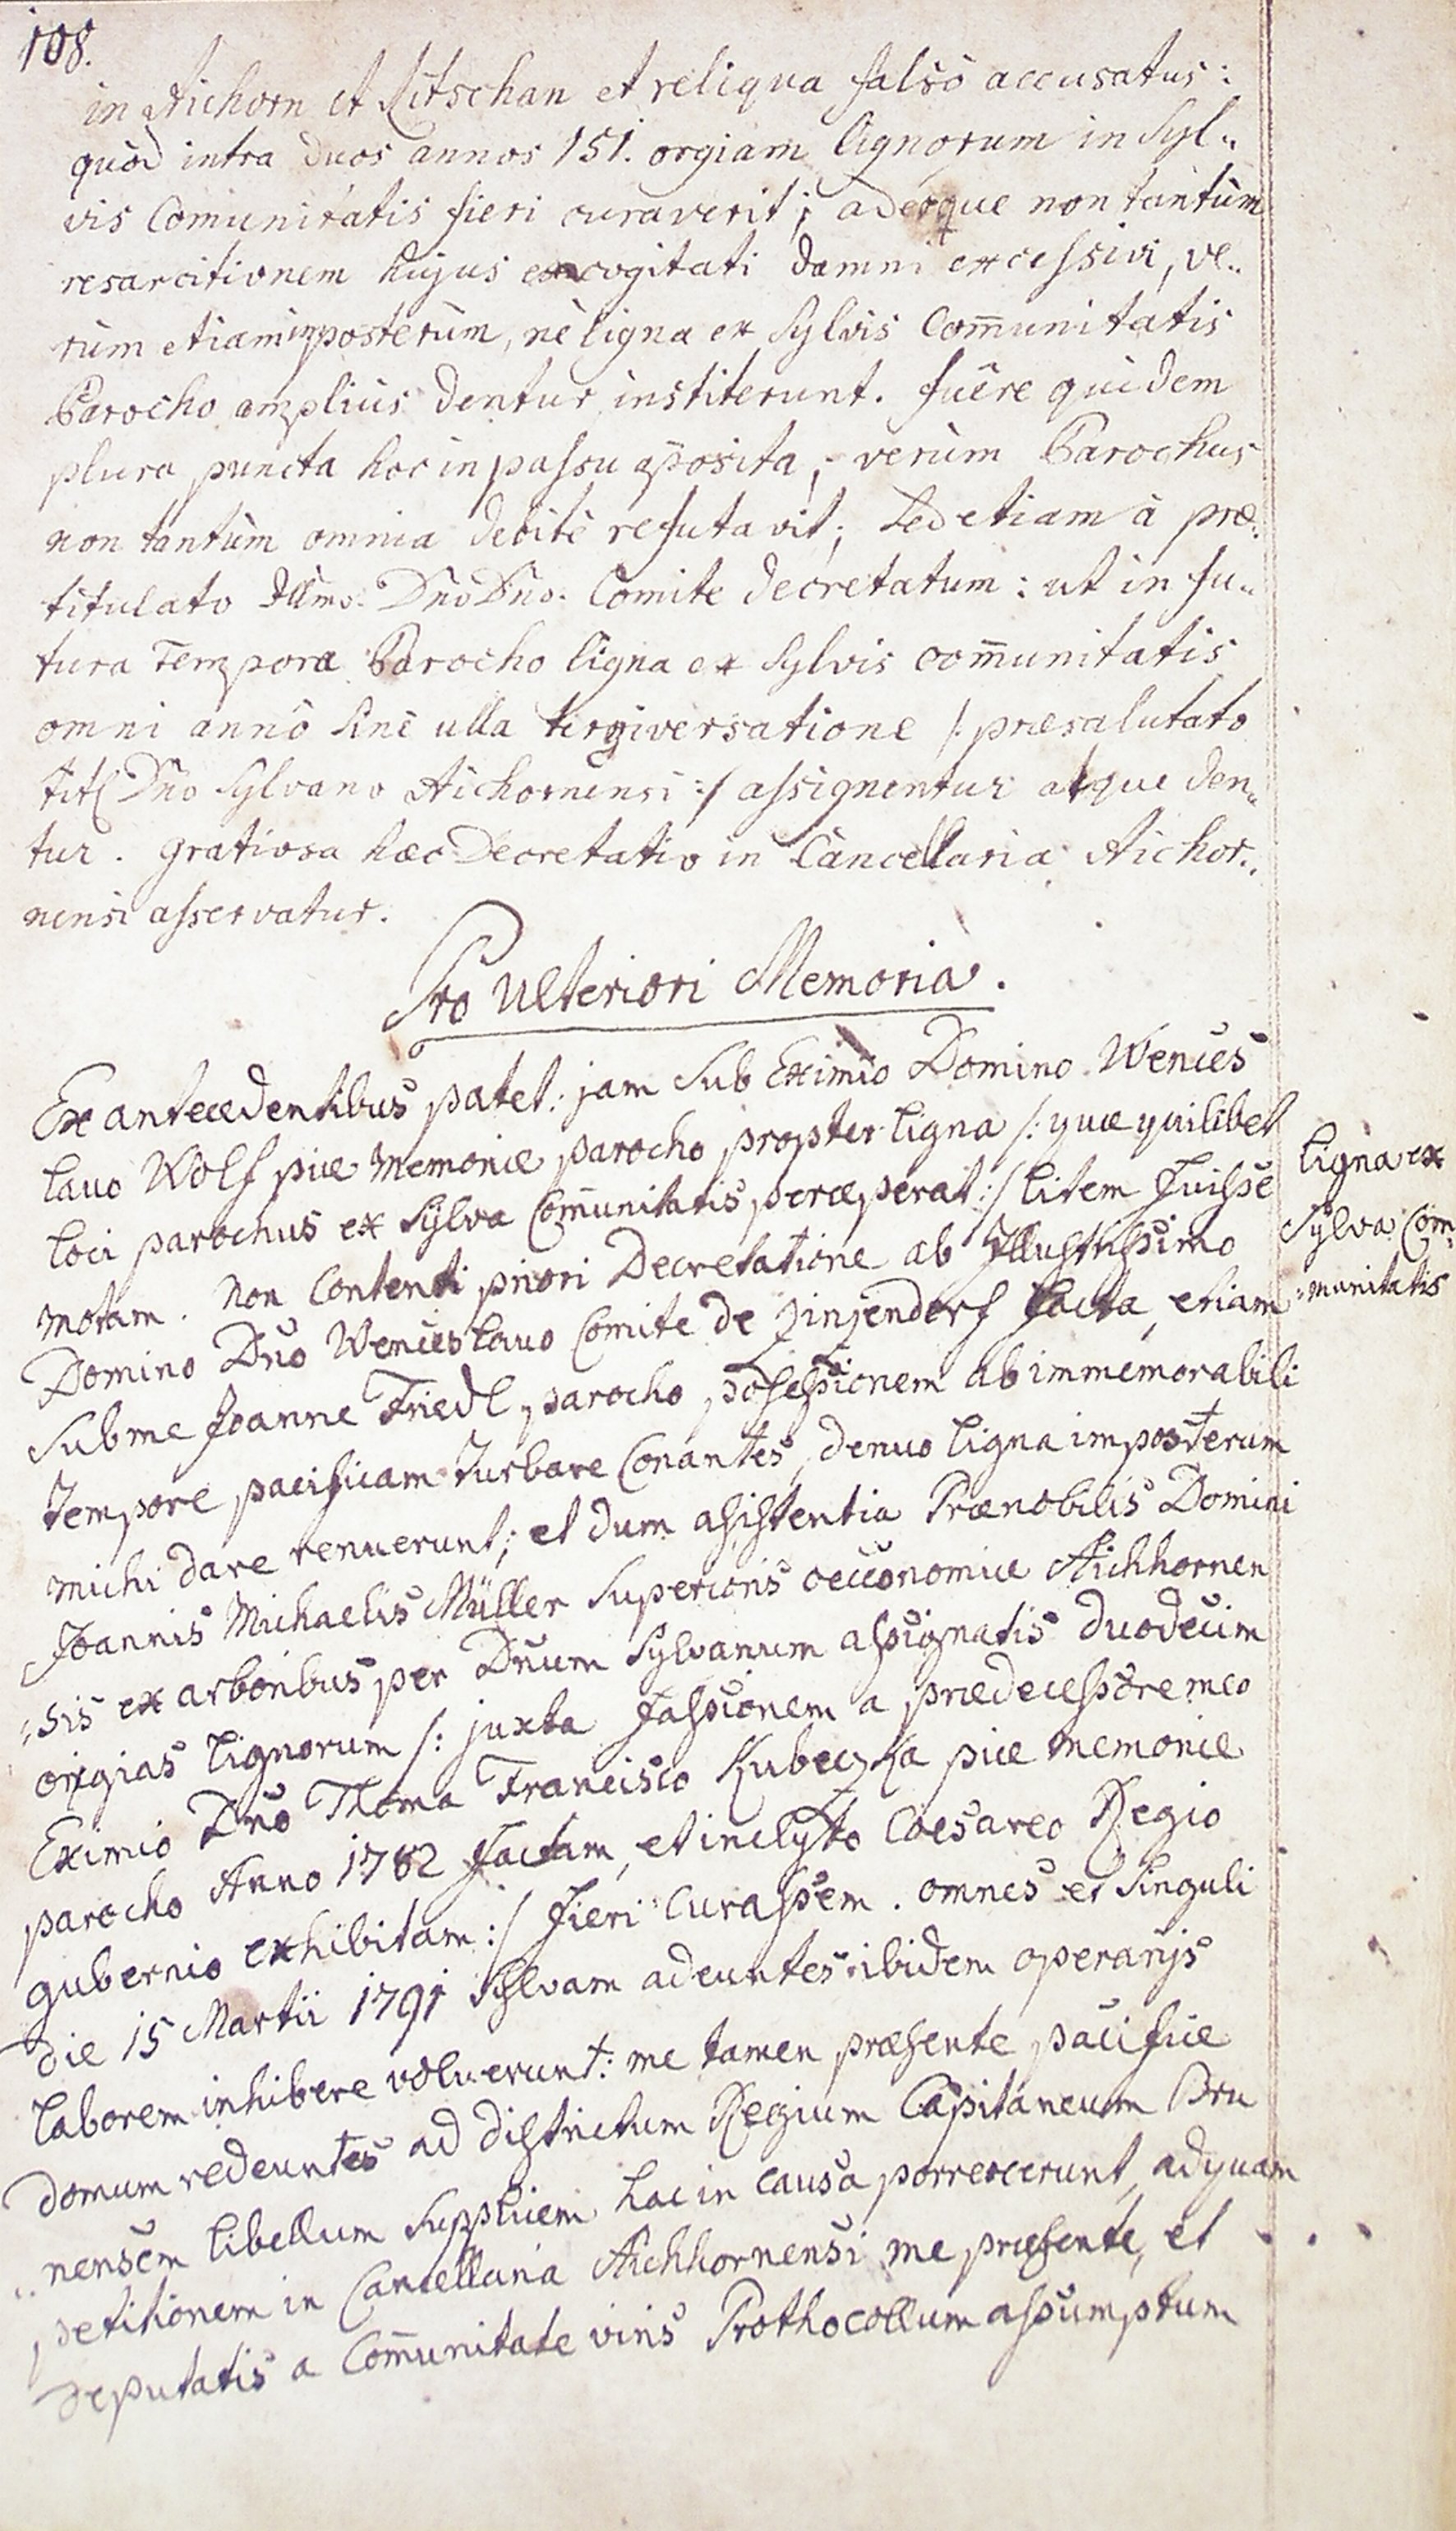 108.
in Aichorn et Ritschan et reliqua falsò accusatus:
quòd intra duos annos 151. orgiam lignorum in Syl„
vis Comunitatis fieri curaverit; adeoque non tantùm
resarcitionem hujus excogitati damni excessivi, ve„
rùm etiam inposterùm, nè ligna ex Sylvis Com̄unitatis
Parocho ampliùs dentur institerunt. fuêre quidem
plura puncta hoc in passu aposita, verùm Parochus
non tantùm omnia debitè refutavit; sed etiam à præ„
titulato Illmo. Dno Dno. Comite decretatum: ut in fu„
tura tempora Parocho ligna ex Sylvis com̄unitatis
omni annô sinè ulla tergiversatione /: præsalutato
titl Dno Sylvano Aichornensi :/ assignentur atque den„
tur. Gratiosa hæc Decretatio in Cancellaria Aichor„
nensi asservatur.
Pro Ulteriori Memoria.
Ex antecedentibus patet: jam sub Eximio Domino Wences
lauo Wolf piæ memoriæ parocho propter ligna /: quæ quilibet
loci parochus ex Sylva Com̄unitatis perceperat :/ litem fuisse
motam. Non contenti priori Decretatione ab Illustrissimo
Domino Dno Wenceslauo Comite de Zinzendorf facta, etiam
sub me Joanne Friedl parocho possessionem ab immemorabili
tempore pacificam turbare conantes, denuo ligna imposterum
michi dare renuerunt; et dum assistentia Prænobilis Domini
Joannis Michaelis Müller Superioris oeconomiæ Aichhornen
„sis ex arboribus per Dnum Sylvanum assignatis duodecim
orgias lignorum /: juxta fassionem a prædecessore meo
Eximio Dno Thoma Francisco Kubeczka piæ memoriæ
parocho Anno 1782 factam, et inclyto Coesareo Regio
gubernio exhibitam :/ fieri curassem. omnes et singuli
die 15 Martii 1791 Sylvam adeuntes ibidem operarijs
laborem inhibere voluerunt: me tamen præsente pacifice
domum redeuntes ad districtum Regium Capitaneum Bru
„nensem libellum supplicem hac in causa porrexerunt, ad quam
petitionem in Cancellaria Aichhornensi me præsente, et
deputatis a Com̄unitate viris Prothocollum assumptum
ligna ex
Sylva Com„
„munitatis